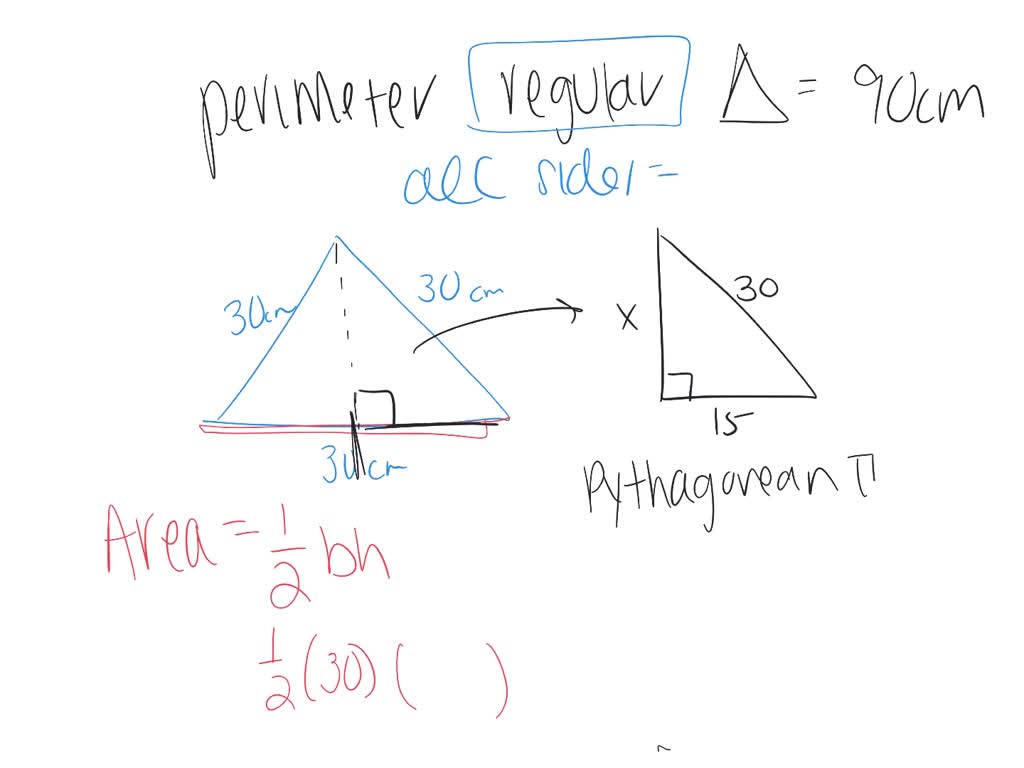 perimeter regular Δ = 90cm
all sides =
30cm
30 cm
30cm
x
30
15
Pythagorean T
Area = 1/2 bh
1/2 (30) ( )